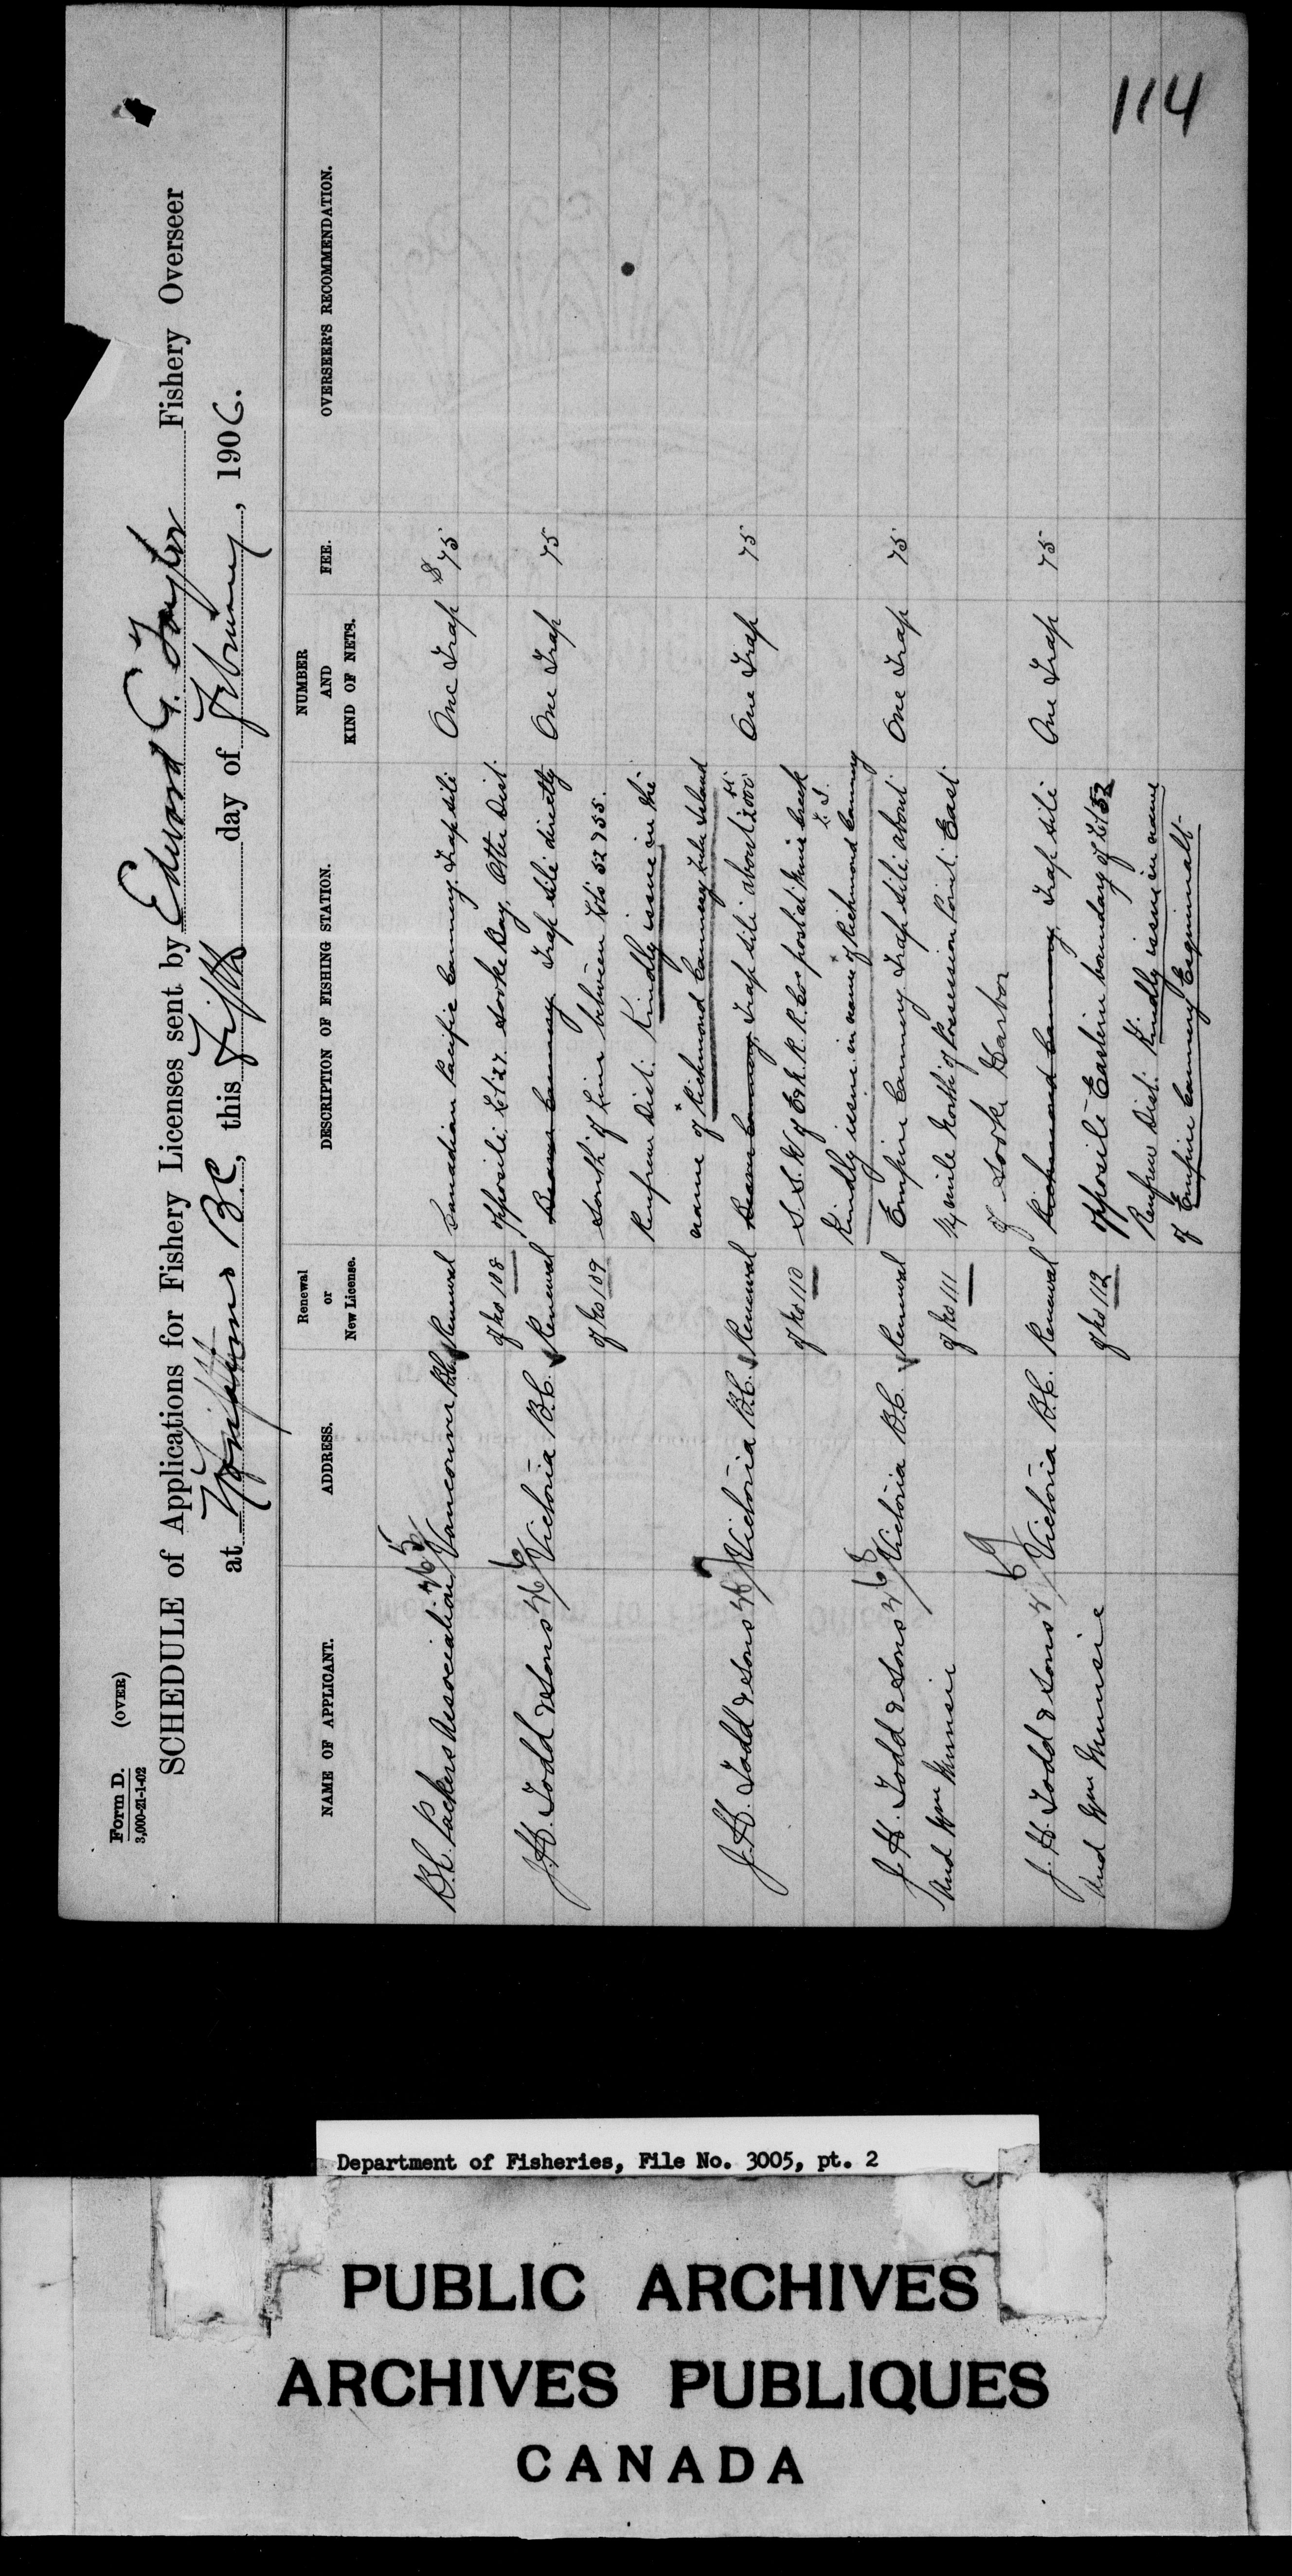 114
Form D. (OVER)
3,000-21-1-02
SCHEDULE of Applications for Fishery Licenses sent by Edward G. Taylor Fishery Overseer
at B.C., this Fifth day of February, 1906.
NAME OF APPLICANT. ADDRESS. Renewal or New License. DESCRIPTION OF FISHING STATION. NUMBER AND KIND OF NETS. FEE. OVERSEER'S RECOMMENDATION.
B.C. Packers Association Vancouver B.C. Renewal Canadian Pacific Cannery. Trap site One Trap $ 75
of No 108 opposite Lot 27. Sooke Bay, Otter Dist.
J.H. Todd & Sons Victoria B.C. Renewal Beaver Cannery Trap site directly One Trap 75
of No 109 South of Line between Lots 52 & 55.
Renfrew Dist. Kindly issue in the
name of Richmond Cannery Lulu Island
J.H. Todd & Sons Victoria B.C. Renewal Beaver Cannery, Trap site about 2000 ft One Trap 75
of No 110 S.S.W of E & N. R. R. Cos post at Muir Creek
Kindly issue in name of Richmond Cannery L.I.
J.H. Todd & Sons Victoria B.C. Renewal Empire Cannery Trap site about One Trap 75
And Wm Munsie of No 111 mile North of Possession Point. East
of Sooke Harbor
J.H. Todd & Sons Victoria B.C. Renewal Richmond Cannery, Trap site One Trap 75
And Wm Munsie of No 112 opposite Eastern boundary of Lot 52
Renfrew Dist. Kindly issue in name
of Empire Cannery Esquimalt.
Department of Fisheries, File No. 3005, pt. 2
PUBLIC ARCHIVES
ARCHIVES PUBLIQUES
CANADA